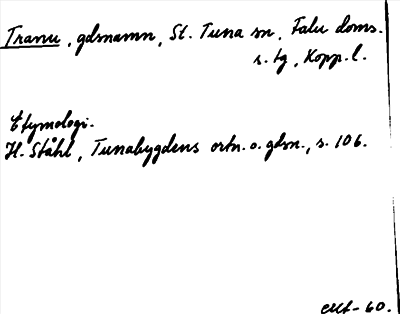 Tranu, gdsnamn, St. Tuna sn, Falu doms.
s. tg, Kopp. l.
Etymologi.
H. Ståhl, Tunabygdens ortn. o. gdsn., s. 106.
-60.